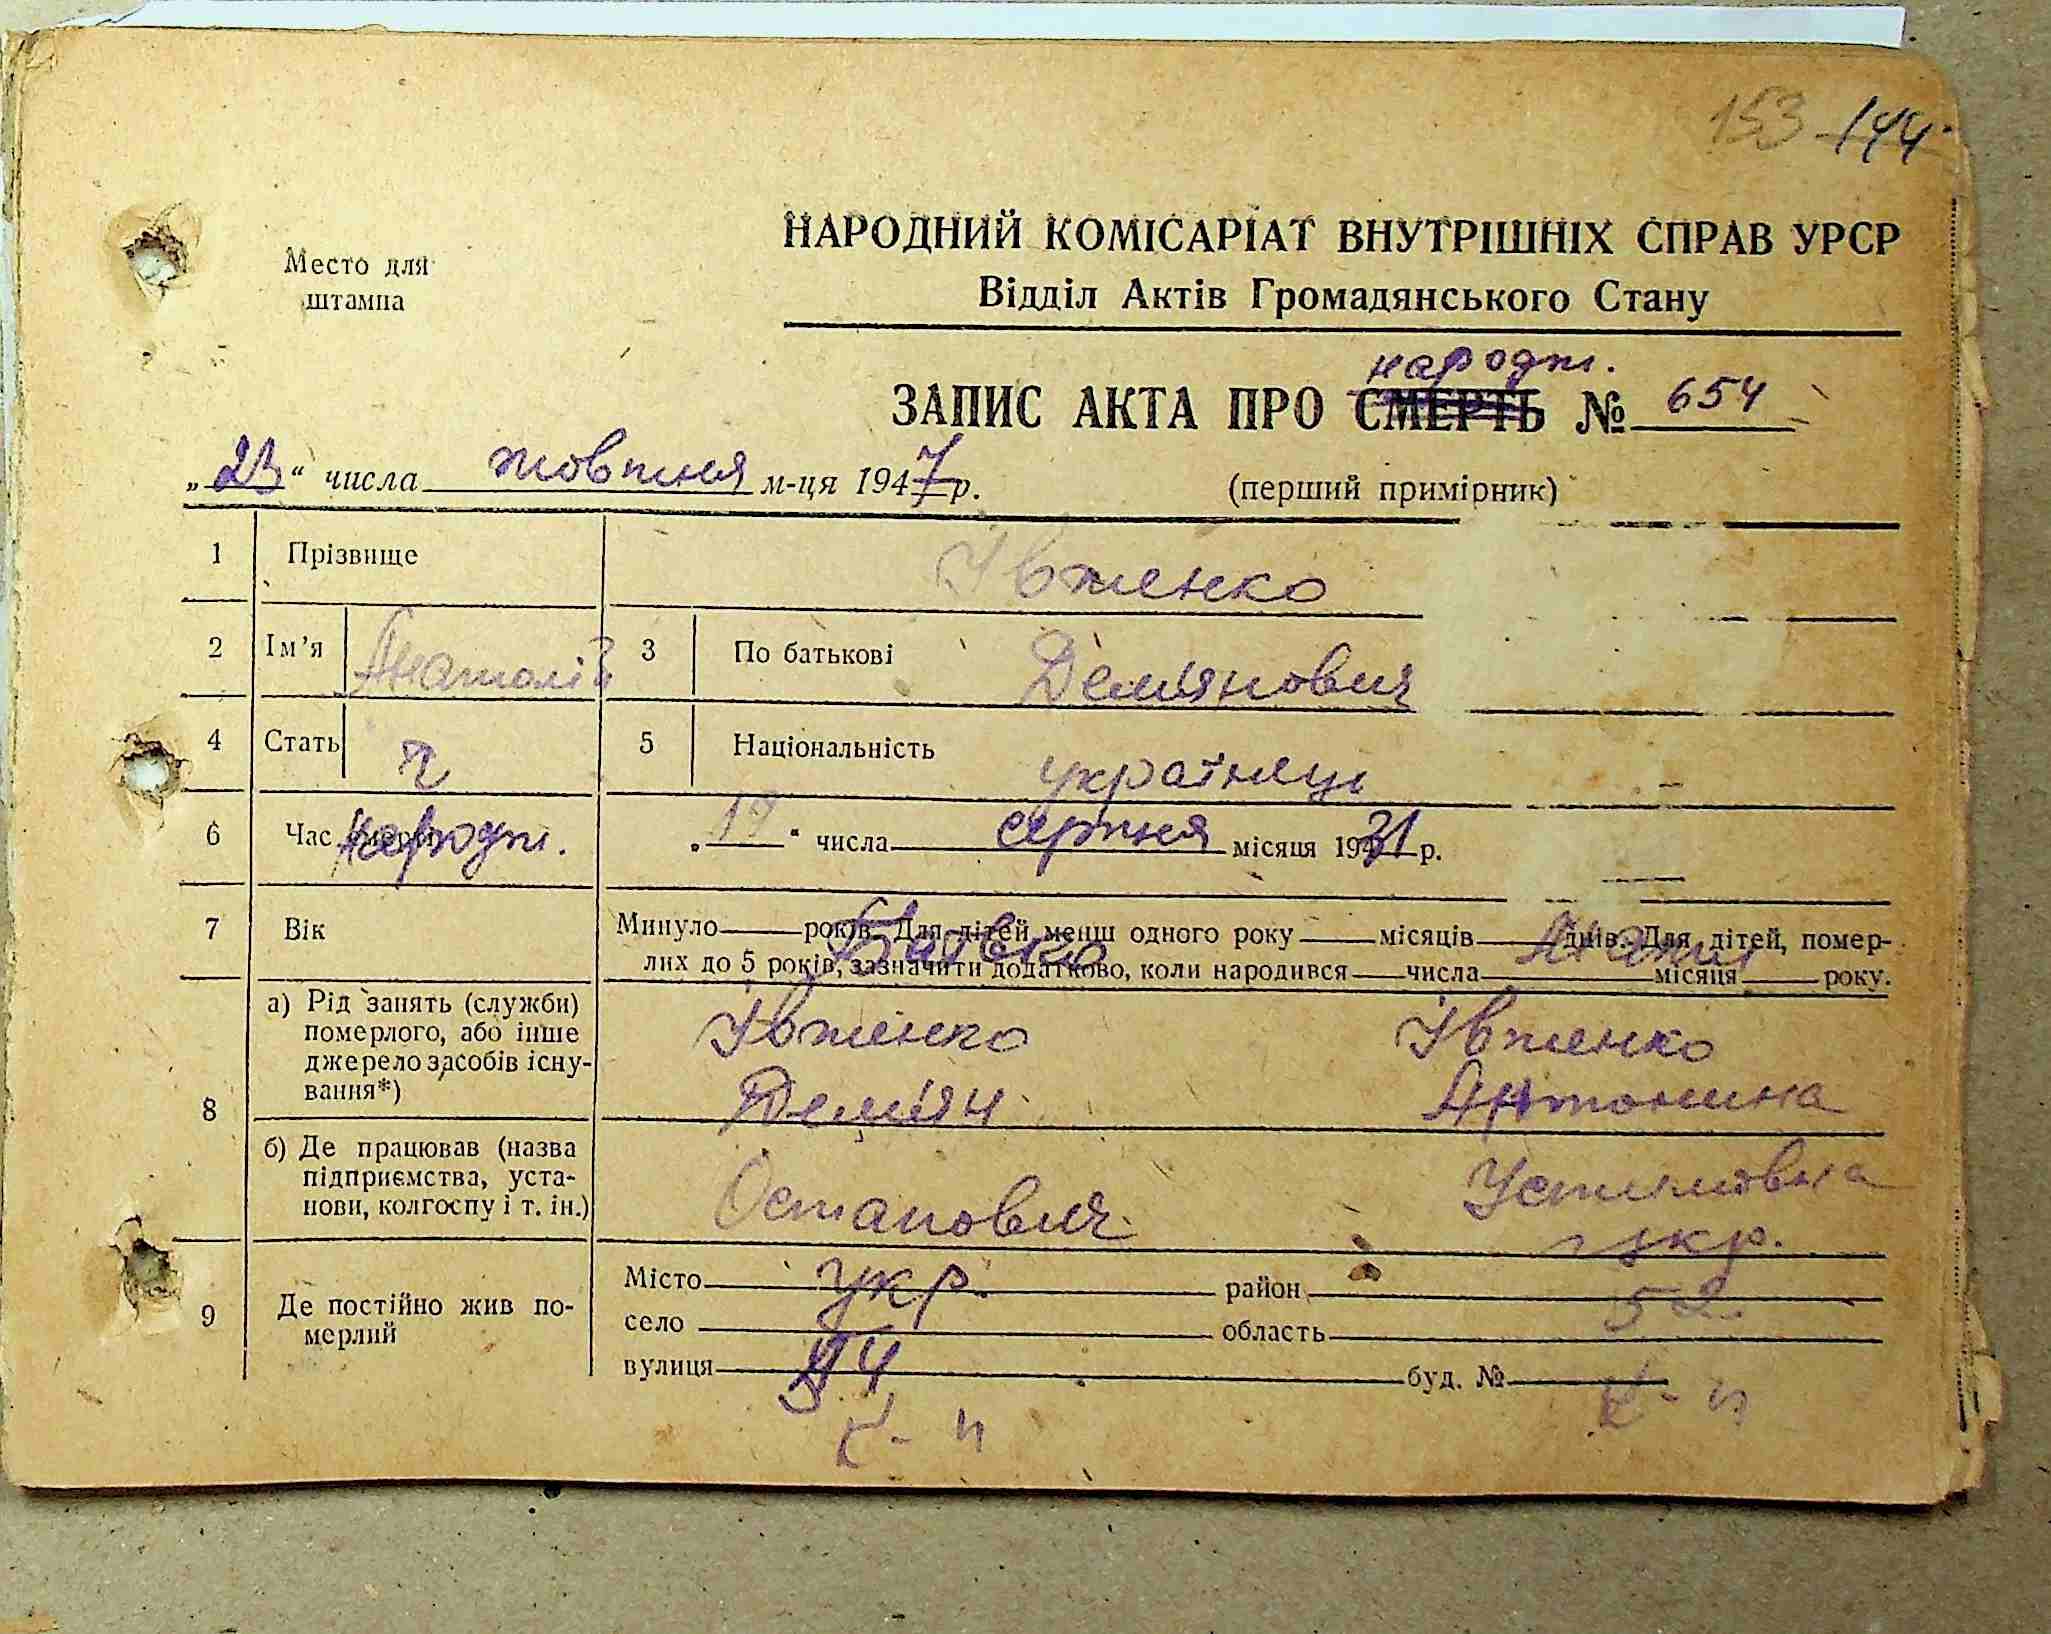 153 144
Место для
штампа
НАРОДНИЙ КОМІСАРІАТ ВНУТРІШНІХ СПРАВ УРСР
Відділ Актів Громадянського Стану
народж.
ЗАПИС АКТА ПРО СМЕРТЬ № 654
„23“ числа жовтня м-ця 1947 р.
(перший примірник)
1 Прізвище Івженко
2 Ім'я Анатолій 3 По батькові Дем'янович
4 Стать ч 5 Національність українець
6 Час народж. числа серпня місяця 1931 р.
7 Вік Минуло років. Для дітей менш одного року місяців днів. Для дітей, помер-
лих до 5 років, зазначити додатково, коли народився числа місяця року.
Батько Мати
8 а) Рід занять (служби)
померлого, або інше
джерело засобів існу-
вання*)
Івженко Івженко
Дем'ян Антонина
б) Де працював (назва
підприємства, уста-
нови, колгоспу і т. ін.)
Остапович Устимовна
укр.
9 Де постійно жив по-
мерлий
Місто укр. район
село область 52
вулиця 54 буд. №
к-п к-п